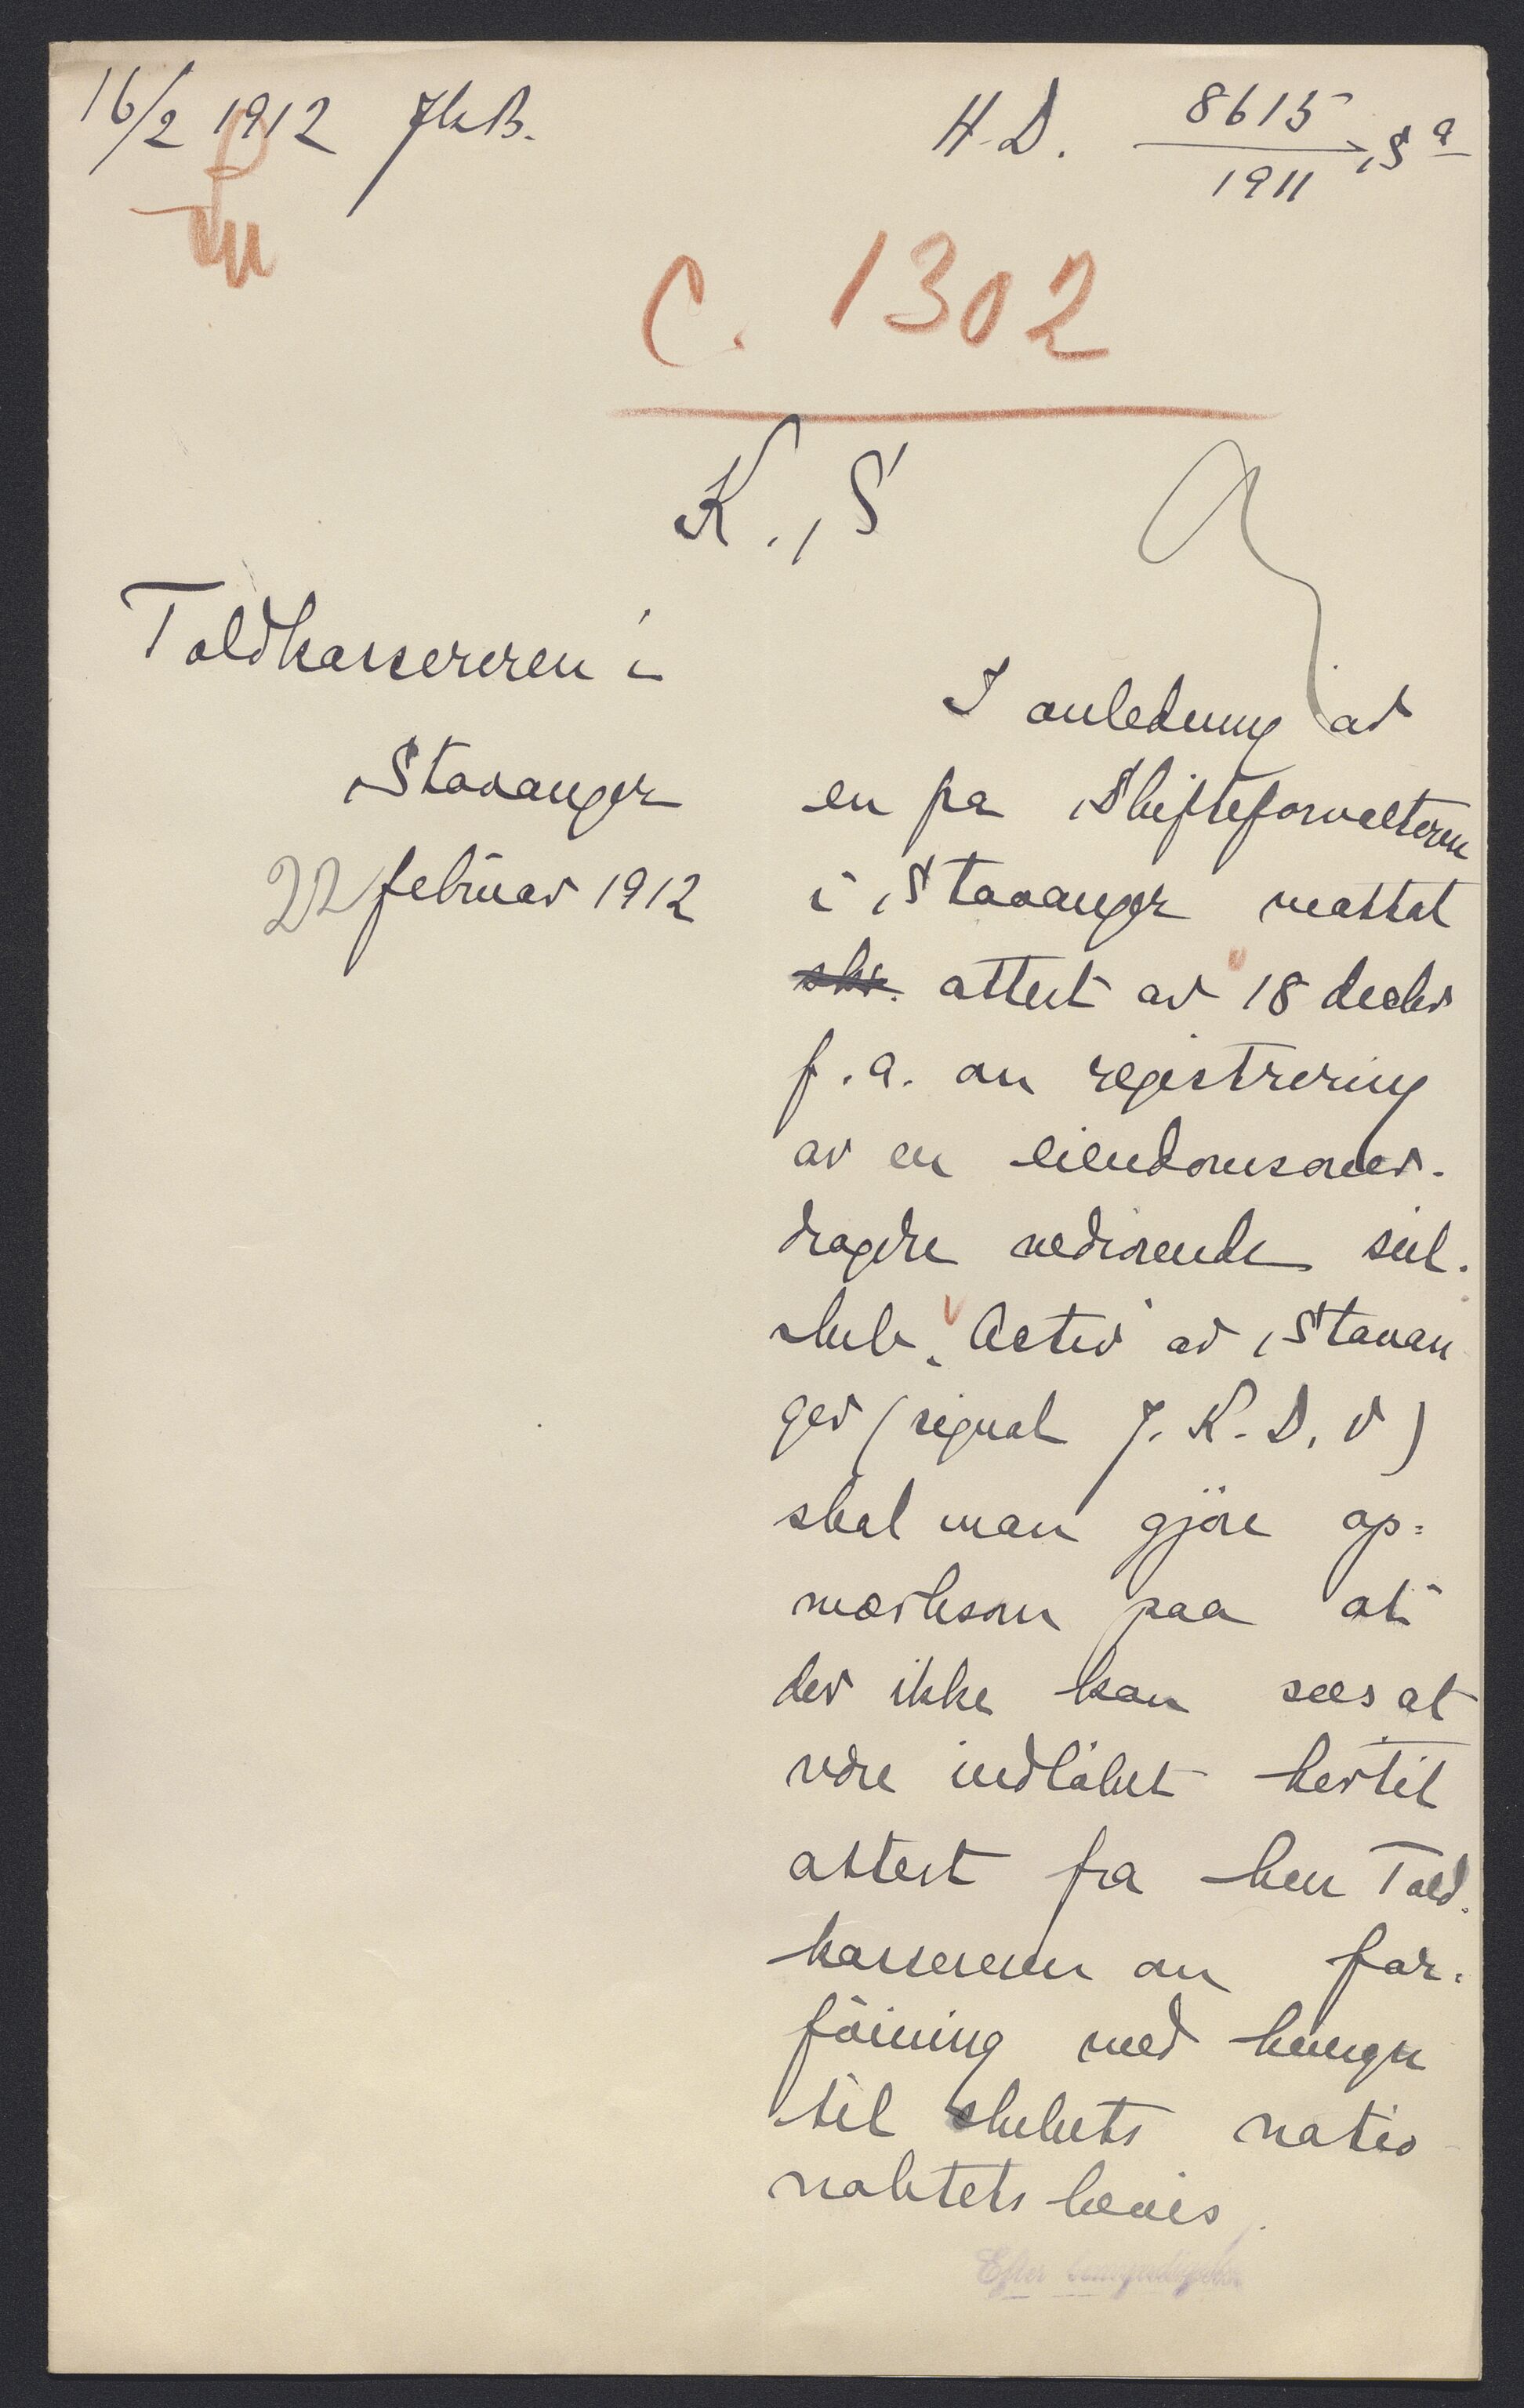 16/2 1912
H. D. 8615/1911, S a
C. 1302
K., S
Toldkassereren i
Stavanger
22 februar 1912
I anledning av
en fra Skifteforvalteren
i Stavanger mottat
skr. attest av 18 decbr
f. a. om registrering
av en eiendomsover-
dragelse vedrørende seil-
skib "Activ" av Stavan
ger (signal J. K. D. V)
skal man gjøre op-
merksom paa at
der ikke kan sees at
være indløbet hertil
attest fra herr Told-
kassereren om for-
føining med hensyn
til skibets natio
nalitetsbevis.
Efter bemyndigelse